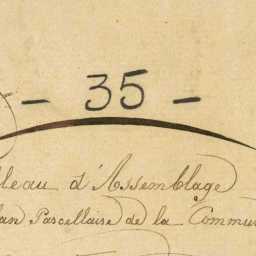 - 35 -
leau d'Assemblage
lan Parcellaire de la Commu